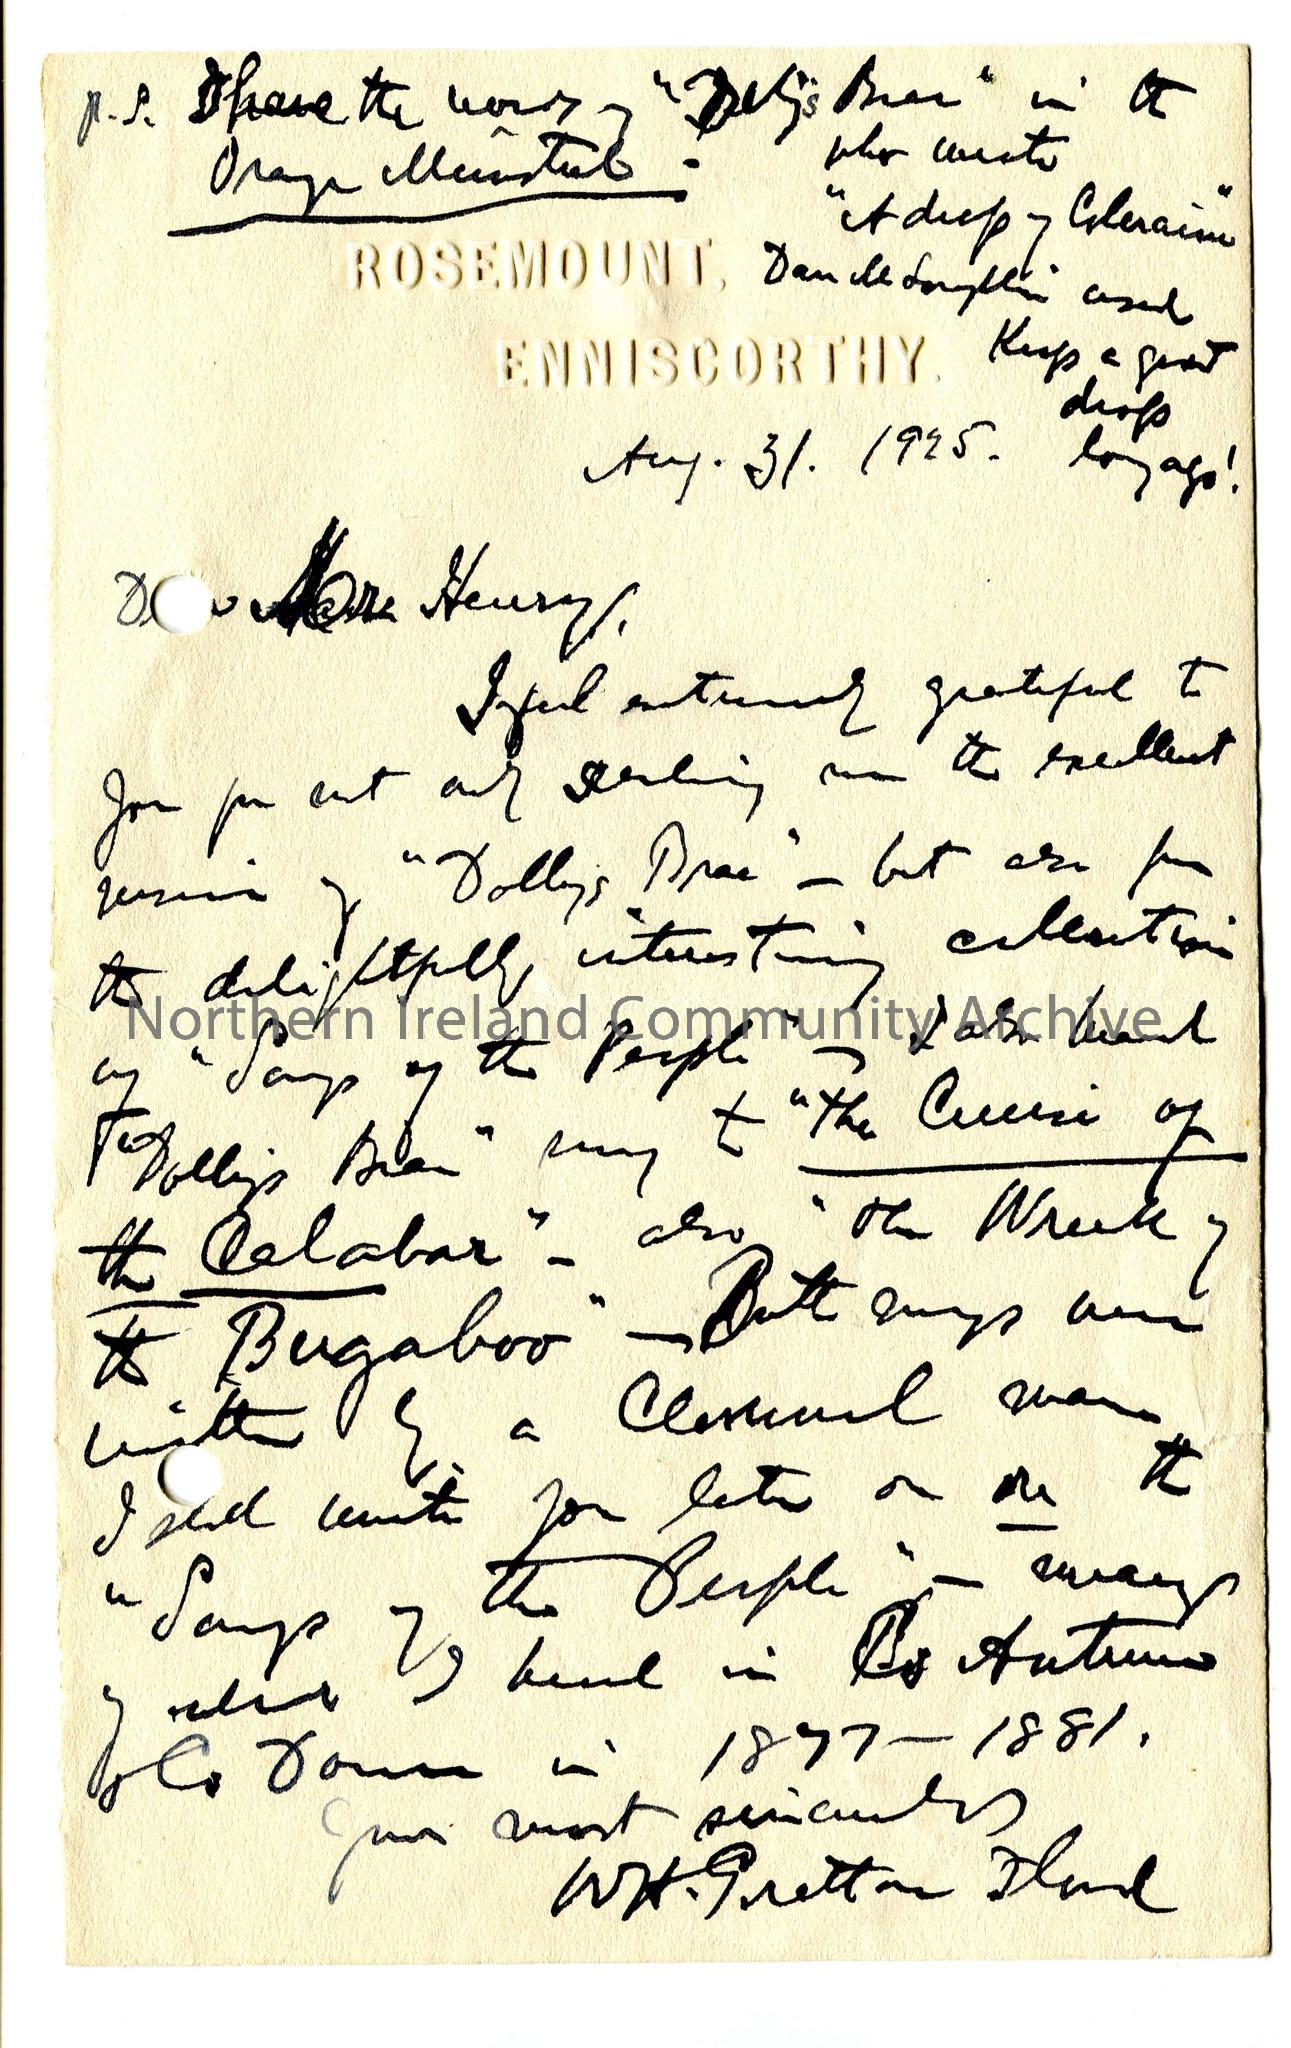 p.s. I have the words of "Dolly's Brae" in the
Orange Minstrel -
who wrote
"A drop of Coleraine"
Dan McLoughlin used
Keep a great
drop
long ago!
ROSEMOUNT,
ENNISCORTHY.
Aug. 31. 1925.
Henry,
I feel extremely grateful to
you for not only sending me the excellent
version of "Dolly's Brae" - but also for
the delightfully interesting collection
of "Songs of the People" - I also heard
"Dolly's Brae" sung to "The Cruise of
the Calabar" - also "The Wreck of
the Bugaboo" - Both songs were
written by a man
I shall write you later on re the
"Songs of the People" - many
of which I heard in Co Antrim
& Co Down in 1877-1881.
Yours most sincerely
WH. Grattan Flood
Northern Ireland Community Archive